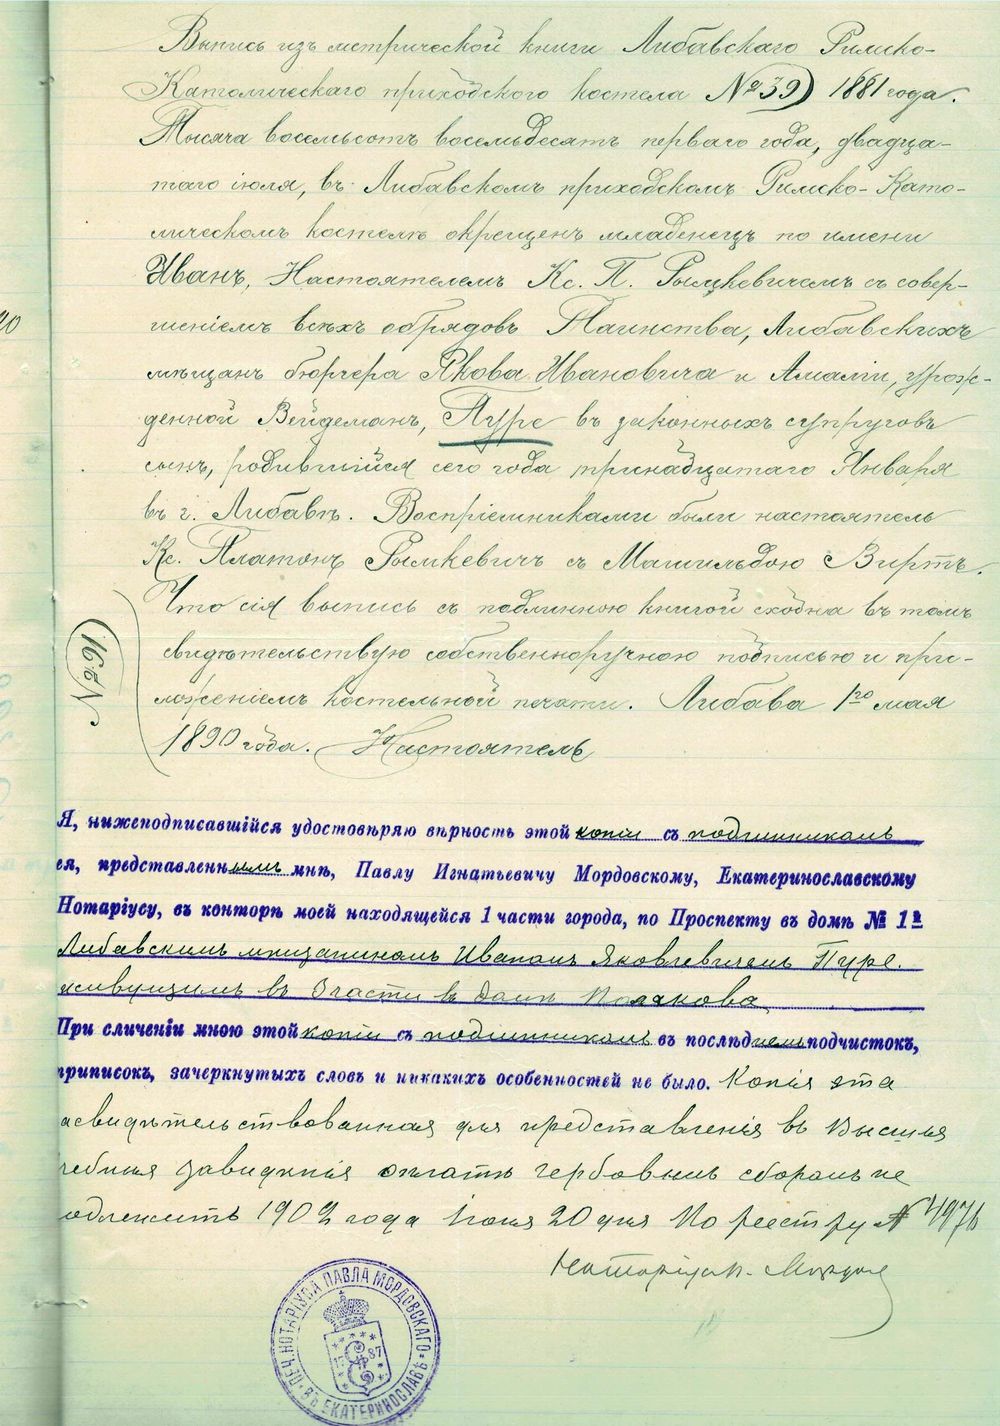 Выпись изъ метрической книги Либавскаго Римско-
Католическаго приходскаго костела № 39) 1881 года.
Тысяча восемьсотъ восемьдесятъ перваго года, двадца-
таго іюля, въ Либавскомъ приходскомъ Римско-Като-
лическомъ костелѣ окрещенъ младенецъ по имени
Иванъ, Настоятелемъ Кс. П. Рымкевичемъ съ совер-
шеніемъ всѣхъ обрядовъ Таинства, Либавскихъ
мѣщанъ бюргера Якова Ивановича и Амаліи, урож-
денной Вейдеманъ, Пуре въ законныхъ супруговъ
сынъ, родившійся сего года тринадцатаго Января
въ г. Либавѣ. Воспріемниками были настоятель
Кс. Платонъ Рымкевичъ съ Матильдою Виртъ.
Что сія выпись съ подлинною книгой сходна въ томъ
свидѣтельствую собственноручною подписью и при-
ложеніемъ костельной печати. Либава 1го мая
1890 года. Настоятель
№ 168
20
Я, нижеподписавшійся удостовѣряю вѣрность этой копіи съ подлинникомъ
ея, представленнымъ мнѣ, Павлу Игнатьевичу Мордовскому, Екатеринославскому
Нотаріусу, въ конторѣ моей находящейся 1 части города, по Проспекту въ домѣ № 1й
Либавскимъ мѣщаниномъ Иваномъ Яковлевичемъ Пуре.
живущимъ въ 3 части въ домѣ Полякова
При сличеніи мною этой копіи съ подлинникомъ въ послѣднемъ подчистокъ,
приписокъ, зачеркнутыхъ словъ и никакихъ особенностей не было. Копія эта
асвидѣтельствованная для представленія въ Высшія
чебныя заведенія оплатѣ гербовымъ сборомъ не
одлежитъ 1902 года Іюня 20 дня По реестру № 4976
Нотаріусъ П. Мордов
ПЕЧ. НОТАРІУСА ПАВЛА МОРДОВСКАГО
ВЪ ЕКАТЕРИНОСЛАВѢ
17 87